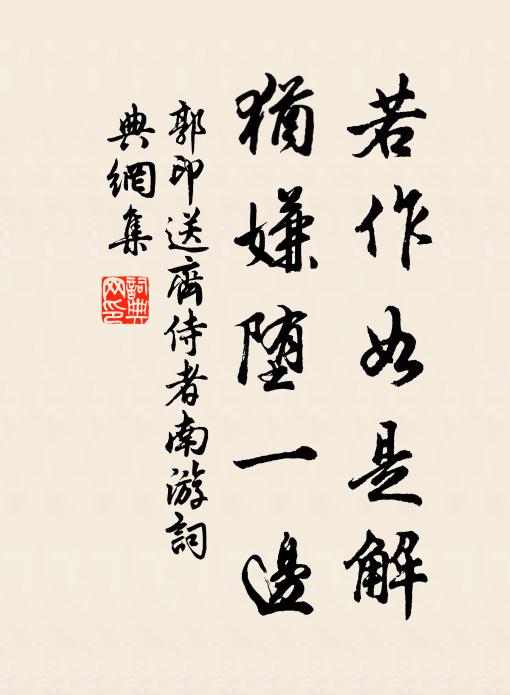 若作如是解
猶嫌堕一邊
郭印送齊侍者南游詞
典網集
詞典
网印